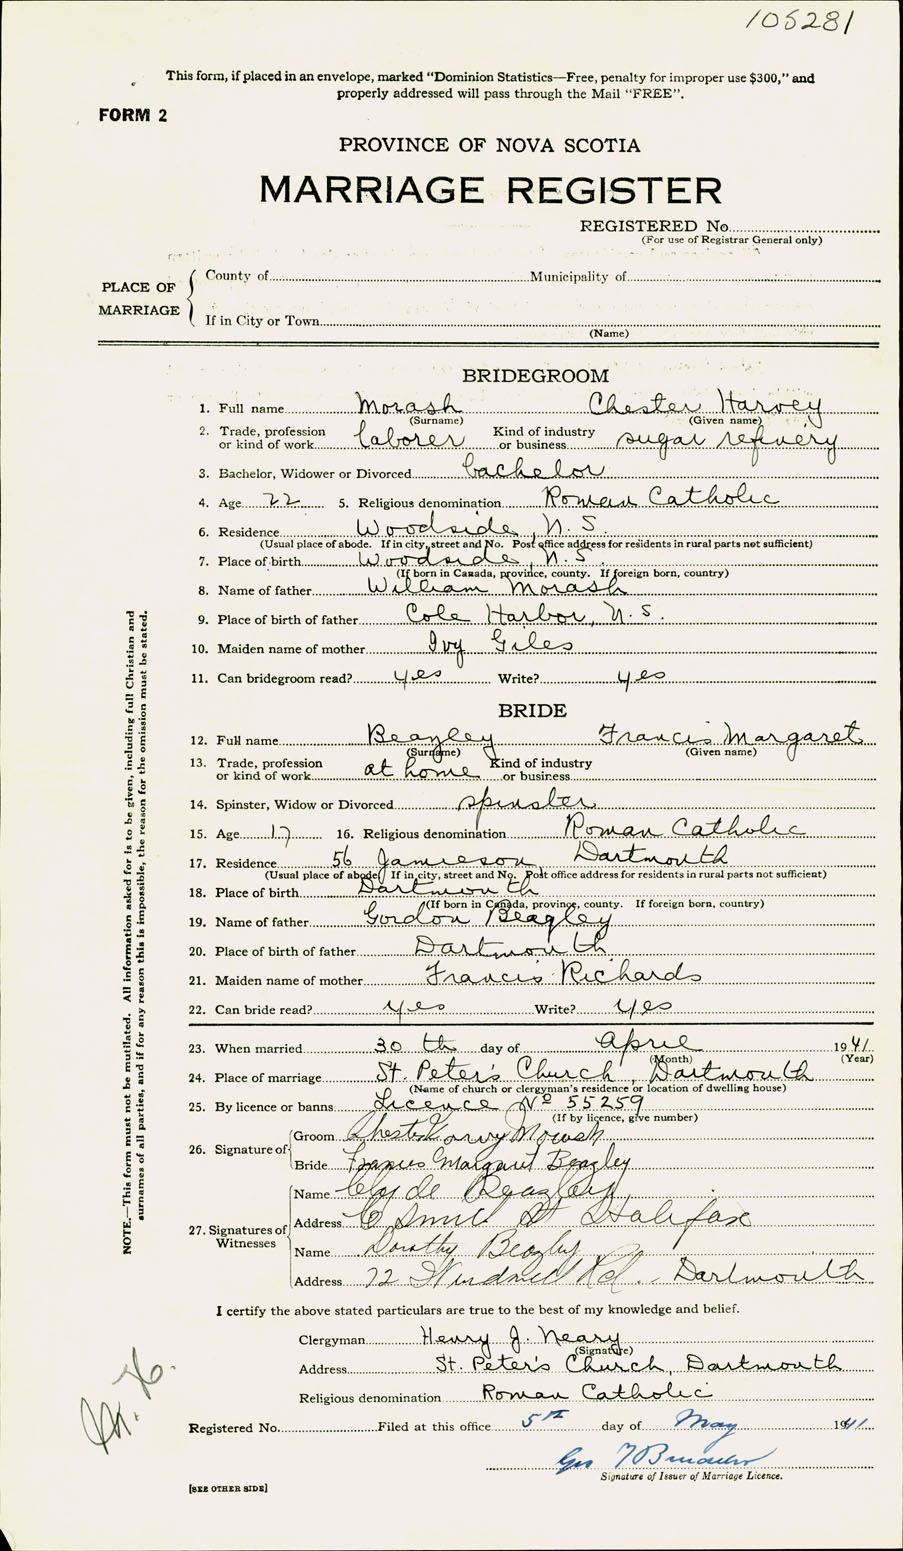 105281
This form, if placed in an envelope, marked “Dominion Statistics—Free, penalty for improper use $300,” and
properly addressed will pass through the Mail “FREE”.
FORM 2
PROVINCE OF NOVA SCOTIA
MARRIAGE REGISTER
REGISTERED No.
(For use of Registrar General only)
PLACE OF MARRIAGE
County of Municipality of
If in City or Town
(Name)
BRIDEGROOM
1. Full name Morash Chester Harvey
(Surname) (Given name)
2. Trade, profession or kind of work laborer Kind of industry or business sugar refinery
3. Bachelor, Widower or Divorced bachelor
4. Age 22 5. Religious denomination Roman Catholic
6. Residence Woodside, N.S.
(Usual place of abode. If in city, street and No. Post office address for residents in rural parts not sufficient)
7. Place of birth Woodside, N.S.
(If born in Canada, province, county. If foreign born, country)
8. Name of father William Morash
9. Place of birth of father Cole Harbor, N.S.
10. Maiden name of mother Ivy Giles
11. Can bridegroom read? yes Write? yes
BRIDE
12. Full name Beazley Francis Margaret
(Surname) (Given name)
13. Trade, profession or kind of work at home Kind of industry or business
14. Spinster, Widow or Divorced spinster
15. Age 17 16. Religious denomination Roman Catholic
17. Residence 56 Jamieson, Dartmouth
(Usual place of abode. If in city, street and No. Post office address for residents in rural parts not sufficient)
18. Place of birth Dartmouth
(If born in Canada, province, county. If foreign born, country)
19. Name of father Gordon Beazley
20. Place of birth of father Dartmouth
21. Maiden name of mother Francis Richards
22. Can bride read? yes Write? yes
23. When married 30 th day of April 1941
(Month) (Year)
24. Place of marriage St. Peter's Church, Dartmouth
(Name of church or clergyman's residence or location of dwelling house)
25. By licence or banns Licence No 55259
(If by licence, give number)
26. Signature of
Groom Chester Harvy Morash
Bride Frances Margaret Beazley
27. Signatures of Witnesses
Name Clyde Beazley
Address St Halifax
Name Dorothy Beazley
Address 72 Windmill Rd. Dartmouth
I certify the above stated particulars are true to the best of my knowledge and belief.
Clergyman Henry J. Neary
(Signature)
Address St. Peter's Church, Dartmouth
Religious denomination Roman Catholic
Registered No. Filed at this office 5th day of May 1941
Signature of Issuer of Marriage Licence.
[SEE OTHER SIDE]
NOTE.—This form must not be mutilated. All information asked for is to be given, including full Christian and
surnames of all parties, and if for any reason this is impossible, the reason for the omission must be stated.